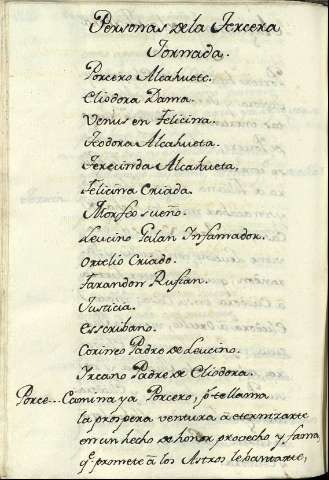 Personas de la Tercera
Jornada.
Porcero Alcahuete.
Eliodora Dama.
Venus en Felicina.
Teodora Alcahueta.
Terecinda Alcahueta,
Felicina Criada.
Morfeo sueño.
Leucino Galan Infamador.
Ortelio Criado.
Farandon Rufian.
Justicia.
Esscribano.
Corineo Padre de Leucino.
Ircano Padre de Eliodora.
Porce... Camina ya Porcero, q̃ te llama
la prospera ventura à eternizarte
en un hecho de honor provecho y fama,
q.^e promete à los Astros lebantarte,